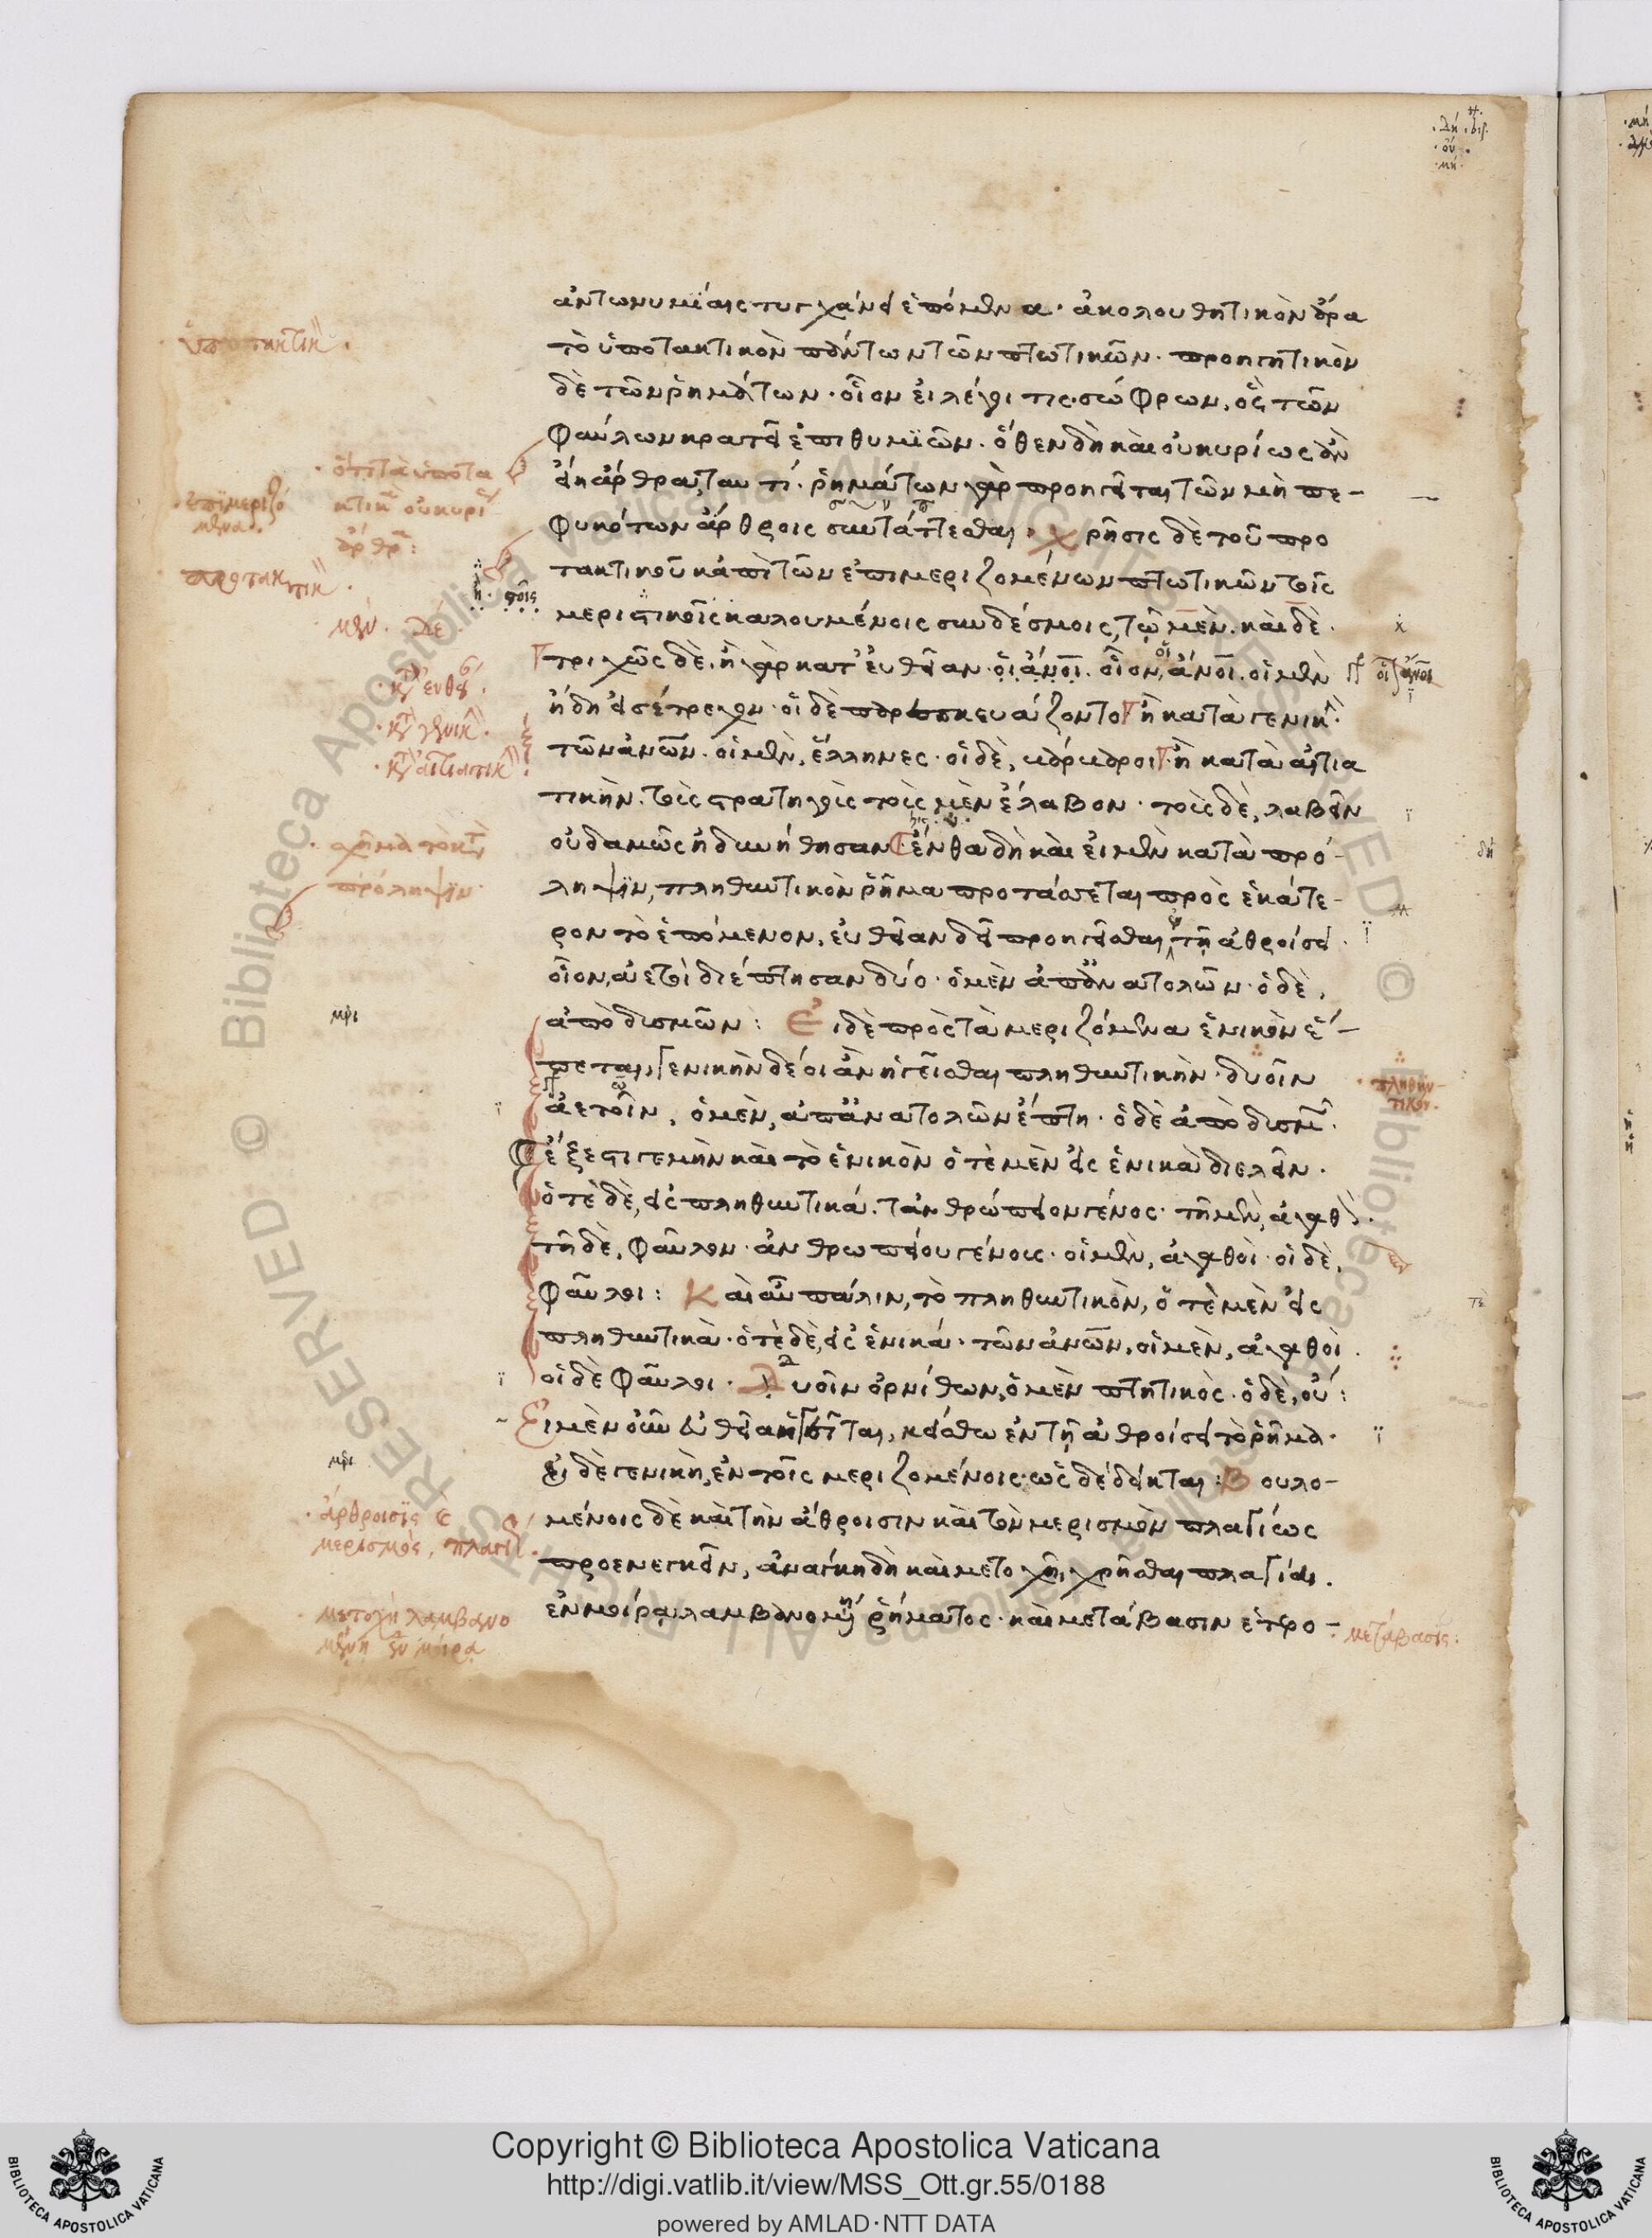 ἀντωνυμίαις τυγχάνει ἑπόμενα· ἀκολουθητικὸν ἄρα
τὸ ὑποτακτικὸν πάντων τῶν πτωτικῶν· προηγητικὸν
δὲ τῶν ῥημάτων· οἷον εἰ λέγοι τις· σώφρων, ὃς τῶν
φαύλων κρατεῖ ἐπιθυμιῶν. ὅθεν δὴ καὶ οὐ κυρίως ἂν
εἴη ἄρθρα ταυτί. ῥημάτων γὰρ προηγεῖται τῶν μὴ πε-
φυκότων ἄρθροις συντάττεσθαι· χρῆσις δὲ τοῦ προ
τακτικοῦ κἀπὶ τῶν ἐπιμεριζομένων πτωτικῶν τοῖς
μεριστικοῖς καλουμένοις συνδέσμοις, τῷ μὲν. καὶ δὲ.
τριχῶς δὲ. ἢ γὰρ κατ' εὐθεῖαν. οἱ ἄνοι. οἷον, ἄνοι. οἱ μὲν
ἤδη εἰσέτρεχον· οἱ δὲ παρεσκευάζοντο ἢ κατὰ γενικ
τῶν ἀνων. οἱ μὲν, ἕλληνες· οἱ δὲ, βάρβαροι ἢ κατὰ αἰτια
τικήν. τοὺς στρατηγοὺς τοὺς μὲν ἔλαβον· τοὺς δὲ, λαβεῖν
οὐδαμῶς ἠδυνήθησαν ἔνθα δὴ καὶ εἰ μὲν κατὰ πρό-
ληψιν, πληθυντικὸν ῥῆμα προτάσσεται πρὸς ἑκάτε-
ρον τὸ ἑπόμενον, εὐθεῖαν δεῖ προηγεῖσθαι, τῇ ἀθροίσει.
οἷον, ἀετοὶ διέπτησαν δύο· ὁ μὲν ἀπὸ ἀνατολῶν· ὁ δὲ,
ἀπὸ δυσμῶν: Εἰ δὲ πρὸς τὰ μεριζόμενα ἑνικὸν ἕ-
πεται, γενικὴν δέοι ἂν ἡγεῖσθαι πληθυντικὴν· δυοῖν
ἀετοῖν, ὁ μὲν, ἀπ' ἀνατολῶν ἔπτη· ὁ δὲ ἀπὸ δυσμ.
ἔξεστι γε μὴν καὶ τὸ ἑνικὸν ὁτὲ μὲν εἰς ἑνικὰ διελεῖν.
ὁτὲ δὲ, εἰς πληθυντικά. τἀνθρώπειον γένος· τῇ μὲν, ἀγαθ.
τῇ δὲ, φαῦλον· ἀνθρωπείου γένους· οἱ μὲν, ἀγαθοὶ· οἱ δὲ,
φαῦλοι: Καὶ αὖ πάλιν, τὸ πληθυντικὸν, ὁτὲ μὲν εἰς
πληθυντικὰ· ὁτὲ δὲ, εἰς ἑνικά· τῶν ἀνων, οἱ μὲν, ἀγαθοὶ.
οἱ δὲ φαῦλοι· Δυοῖν ὀρνίθων, ὁ μὲν πτητικὸς· ὁ δὲ, οὔ:
Εἰ μὲν οὖν εὐθεῖα ἡγεῖται, κείσθω ἐν τῇ ἀθροίσει τὸ ῥῆμα·
εἰ δὲ γενικὴ, ἐν τοῖς μεριζομένοις· ὡς δέδεικται: Βουλο-
μένοις δὲ καὶ τὴν ἄθροισιν καὶ τὸν μερισμὸν πλαγίως
προενεγκεῖν, ἀνάγκη δὴ καὶ μετοχῇ, χρῆσθαι πλαγίᾳ.
ἐν μοίρᾳ λαμβανομένῃ ῥήματος· καὶ μετάβασιν ἑτερο-
ὑποτακτικ.
ὅτι τὰ ὑποτα
κτικ οὐ κυρι
ἄρθρ:
ἐπιμεριζό
μενα.
προτακτικ.
μέν. δέ.
κτ εὐθεῖ.
κτ γενικ.
κτ αἰτιατικ.
σχῆμα τὸ κτ
πρόληψιν·
πληθυν-
τικόν.
ἄθροισις καὶ
μερισμὸς, πλαγι.
μετοχὴ λαμβανο
μένη ἐν μοίρᾳ
μετάβασις:
Copyright © Biblioteca Apostolica Vaticana
http://digi.vatlib.it/view/MSS_Ott.gr.55/0188
powered by AMLAD·NTT DATA